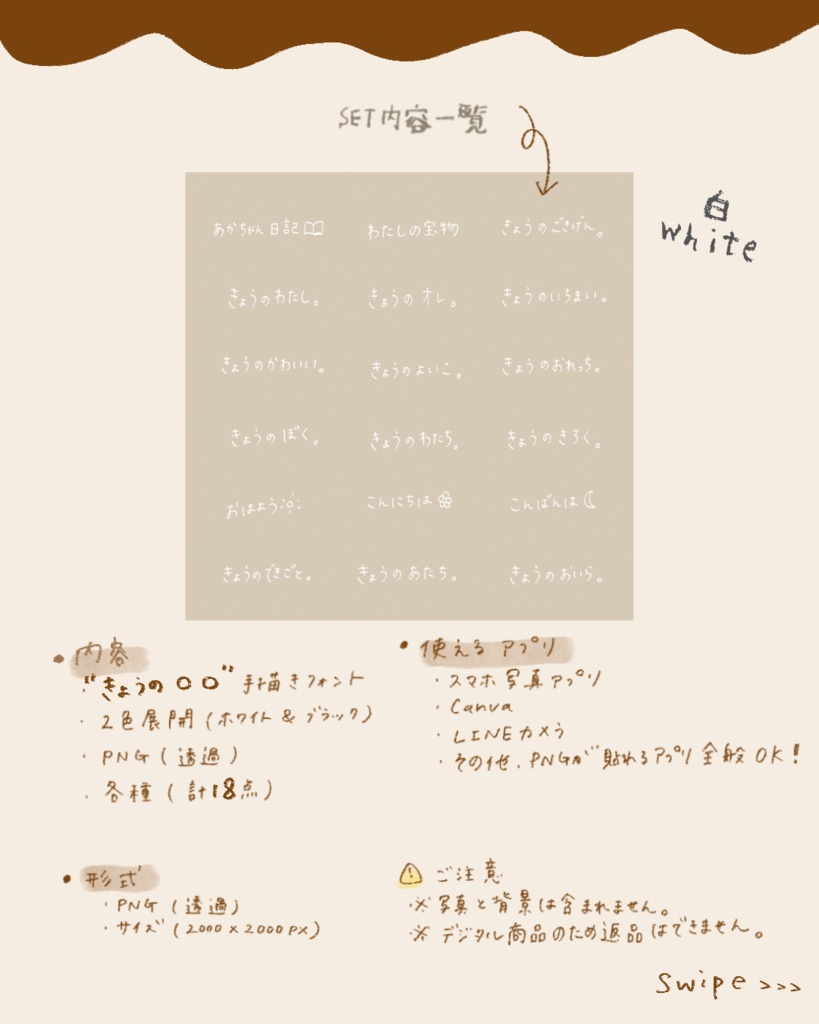 SET内容一覧
白
White
あかちゃん日記 わたしの宝物 きょうのごきげん。
きょうのわたし。 きょうのオレ。 きょうのいちまい。
きょうのかわいい。 きょうのよいこ。 きょうのおれっち。
きょうのぼく。 きょうのわたち。 きょうのきろく。
おはよう こんにちは こんばんは
きょうのできごと。 きょうのあたち。 きょうのおいら。
• 内容
・"きょうの〇〇" 手描きフォント
・2色展開(ホワイト & ブラック)
・PNG(透過)
・各種(計18点)
• 使えるアプリ
・スマホ写真アプリ
・Canva
・LINEカメラ
・その他、PNGが貼れるアプリ全般OK!
• 形式
・PNG(透過)
・サイズ(2000×2000PX)
⚠ ご注意
・※写真と背景は含まれません。
・※デジタル商品のため返品はできません。
Swipe >>>